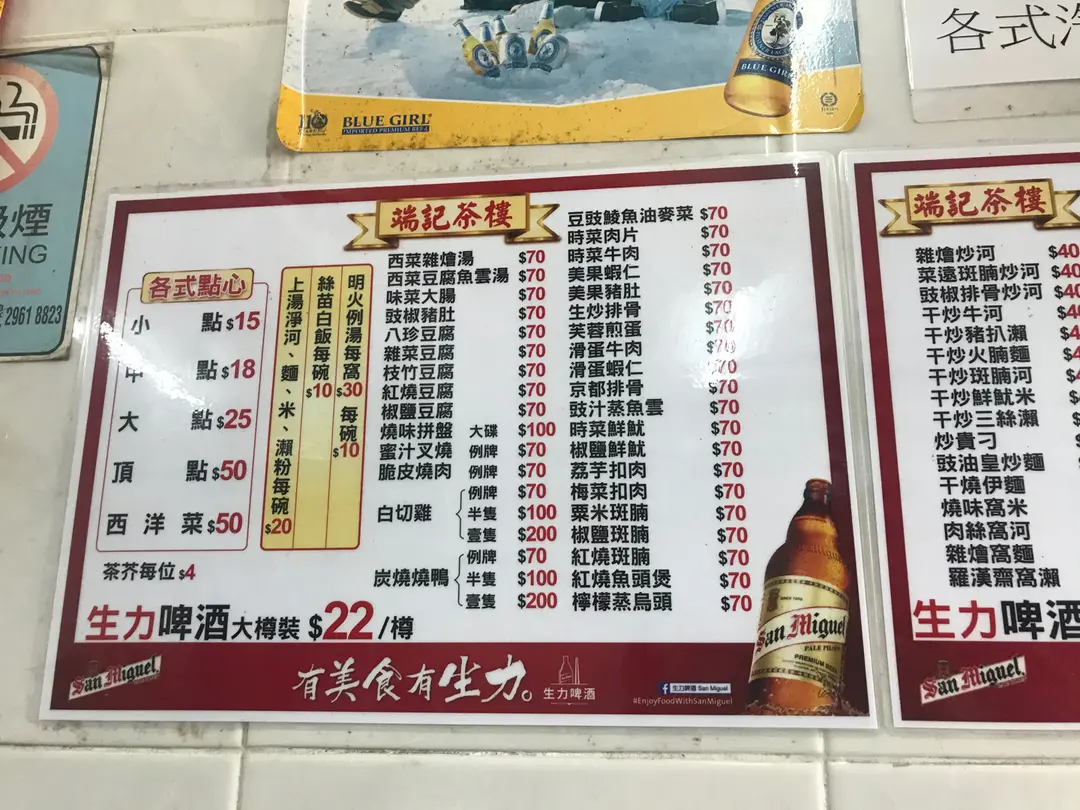 110
BLUE GIRL
IMPORTED PREMIUM BEER
BLUE GIRL
各式
煙
ING
2961 8823
端記茶樓
各式點心
小 點 $15
中 點 $18
大 點 $25
頂 點 $50
西洋菜 $50
茶芥每位 $4
明火例湯每窩 $30 每碗 $10
絲苗白飯每碗 $10
上湯淨河、麵、米、瀨粉每碗 $20
西菜雜燴湯 $70
西菜豆腐魚雲湯 $70
味菜大腸 $70
豉椒豬肚 $70
八珍豆腐 $70
雜菜豆腐 $70
枝竹豆腐 $70
紅燒豆腐 $70
椒鹽豆腐 $70
燒味拼盤 大碟 $100
蜜汁叉燒 例牌 $70
脆皮燒肉 例牌 $70
白切雞 例牌 $70
半隻 $100
壹隻 $200
炭燒燒鴨 例牌 $70
半隻 $100
壹隻 $200
豆豉鯪魚油麥菜 $70
時菜肉片 $70
時菜牛肉 $70
美果蝦仁 $70
美果豬肚 $70
生炒排骨 $70
芙蓉煎蛋 $70
滑蛋牛肉 $70
滑蛋蝦仁 $70
京都排骨 $70
豉汁蒸魚雲 $70
時菜鮮魷 $70
椒鹽鮮魷 $70
荔芋扣肉 $70
梅菜扣肉 $70
粟米斑腩 $70
椒鹽斑腩 $70
紅燒斑腩 $70
紅燒魚頭煲 $70
檸檬蒸烏頭 $70
生力啤酒大樽裝 $22/樽
San Miguel
有美食有生力。
生力啤酒
生力啤酒 San Miguel
#EnjoyFoodWithSanMiguel
San Miguel
PALE PILSEN
PREMIUM BEER
端記茶樓
雜燴炒河 $40
菜遠斑腩炒河 $40
豉椒排骨炒河 $40
干炒牛河
干炒豬扒瀨
干炒火腩麵
干炒斑腩河
干炒鮮魷米
干炒三絲瀨
炒貴刁
豉油皇炒麵
干燒伊麵
燒味窩米
肉絲窩河
雜燴窩麵
羅漢齋窩瀨
生力啤酒
San Miguel